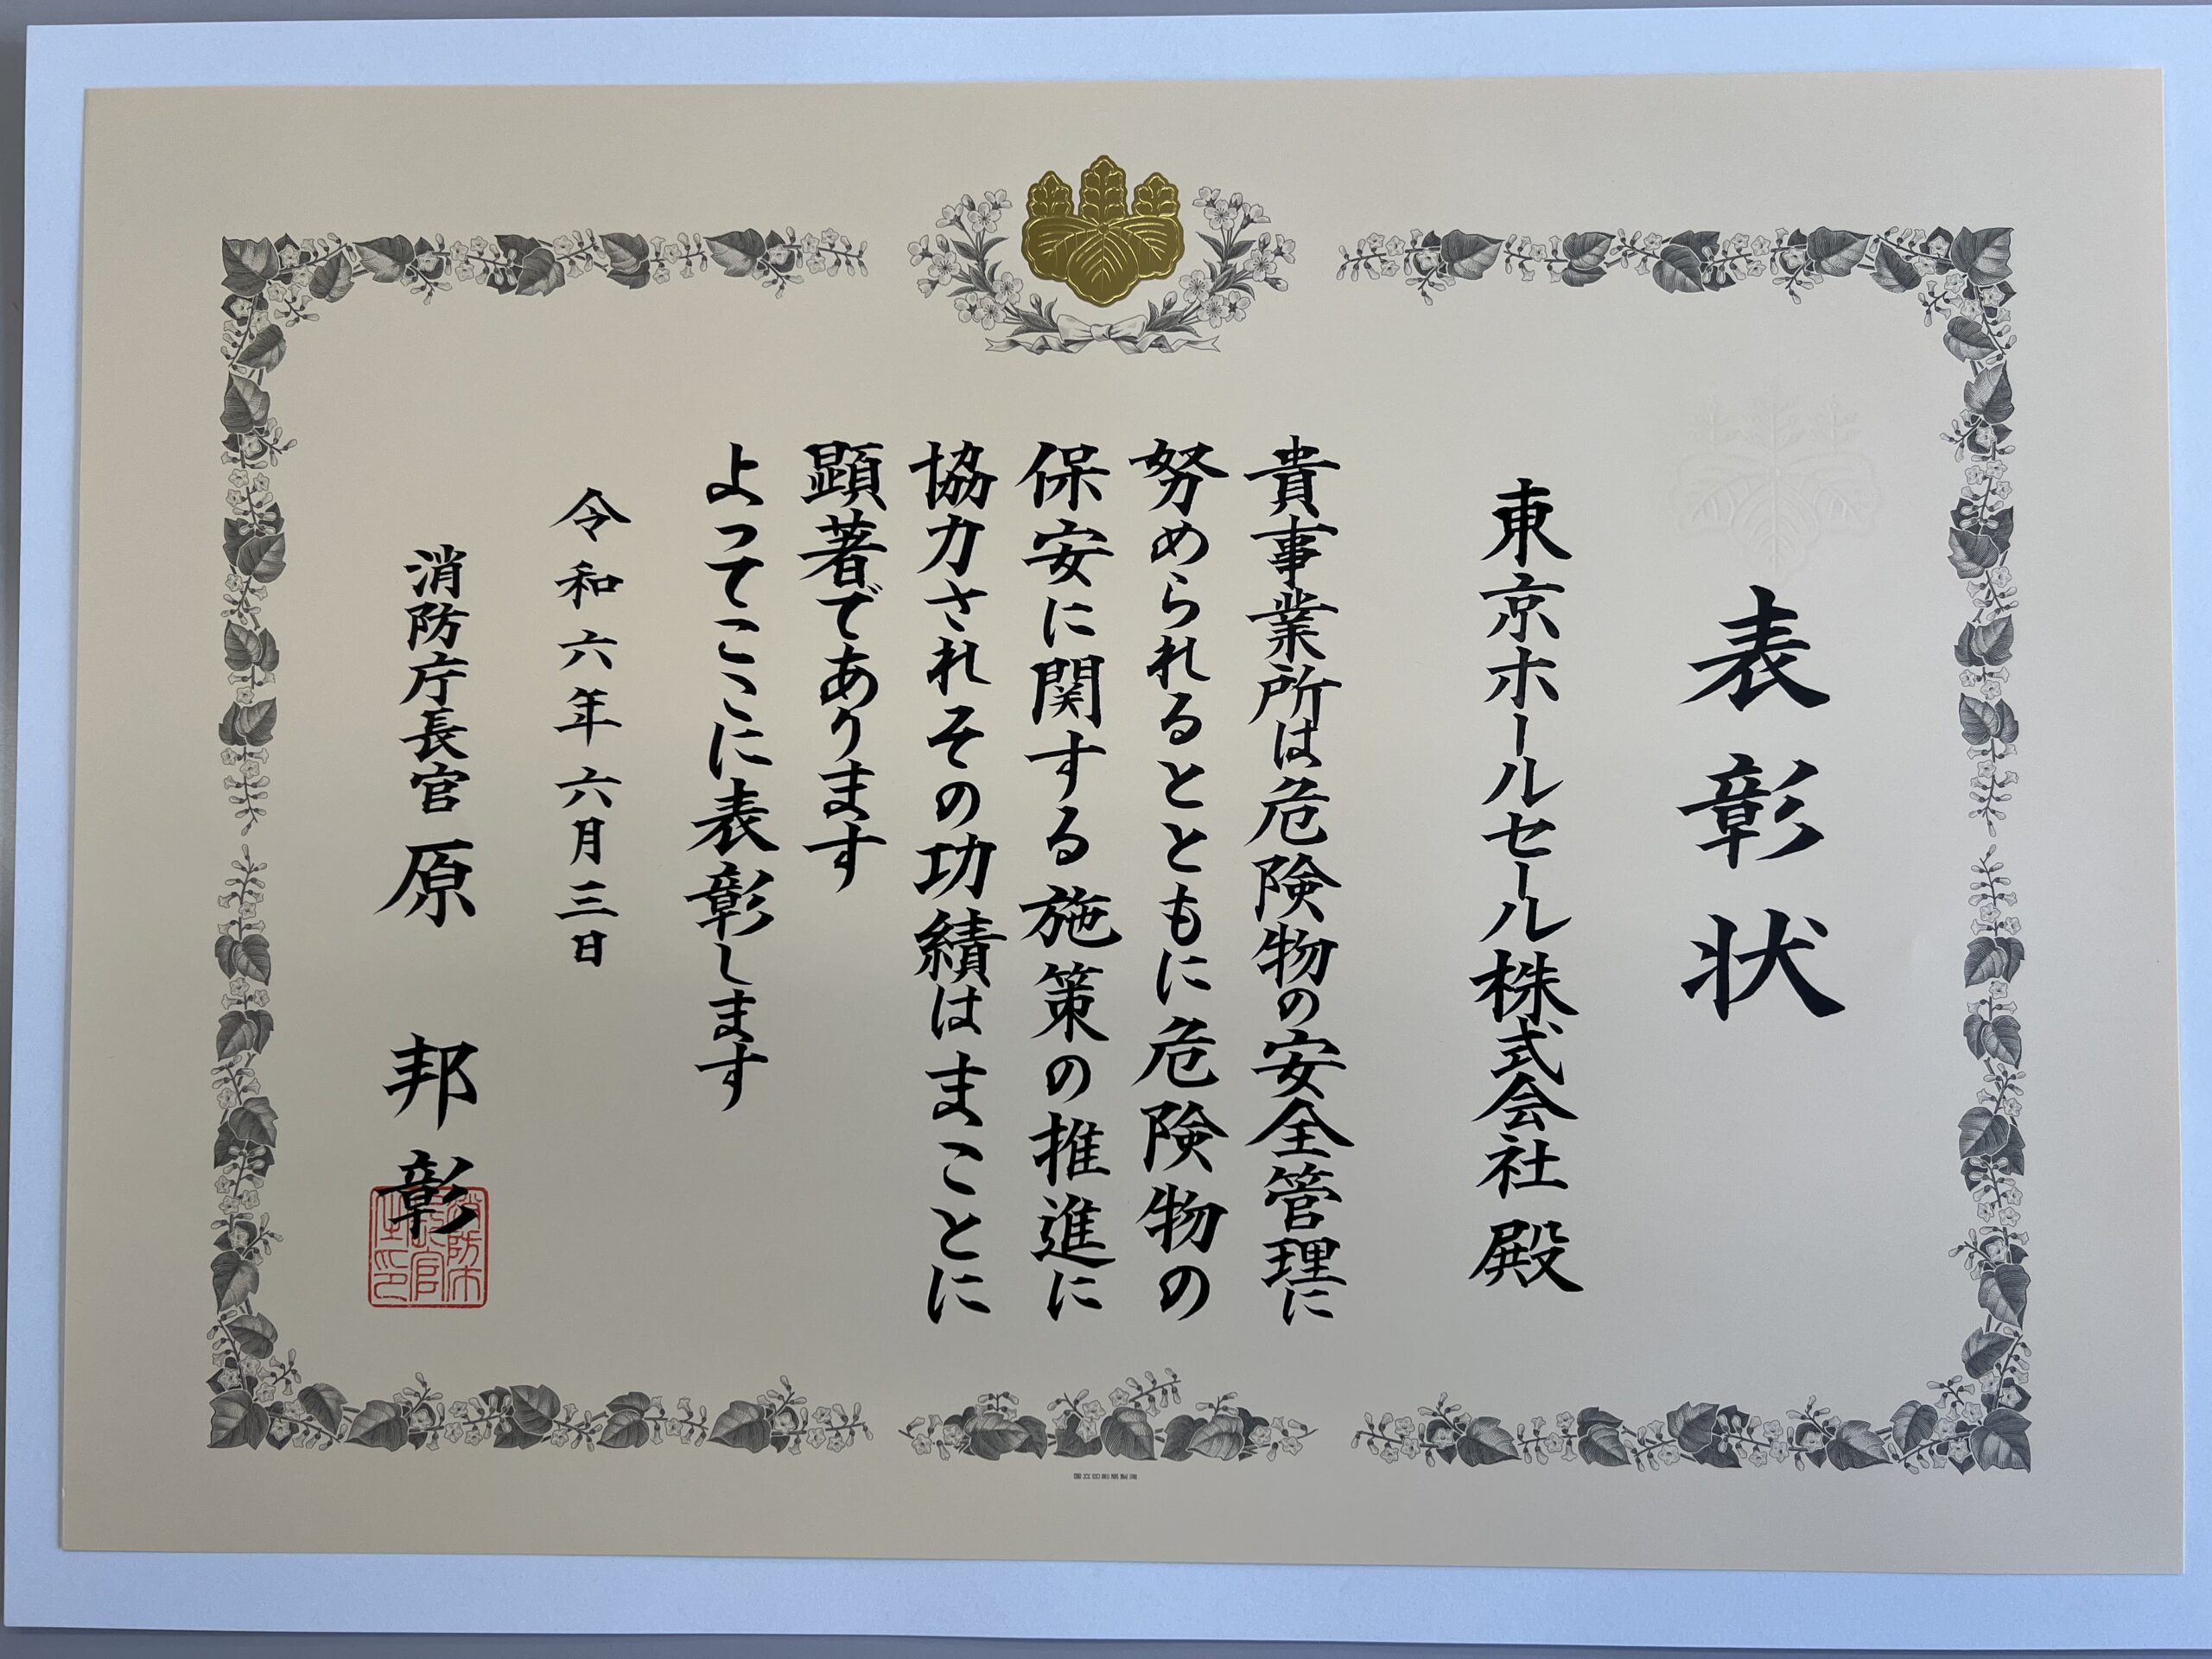 表彰状
東京ホールセール株式会社 殿
貴事業所は危険物の安全管理に
努められるとともに危険物の
保安に関する施策の推進に
協力されその功績はまことに
顕著であります
よってここに表彰します
令和六年六月三日
消防庁長官 原 邦彰
消防庁長官之印
国立印刷局製造